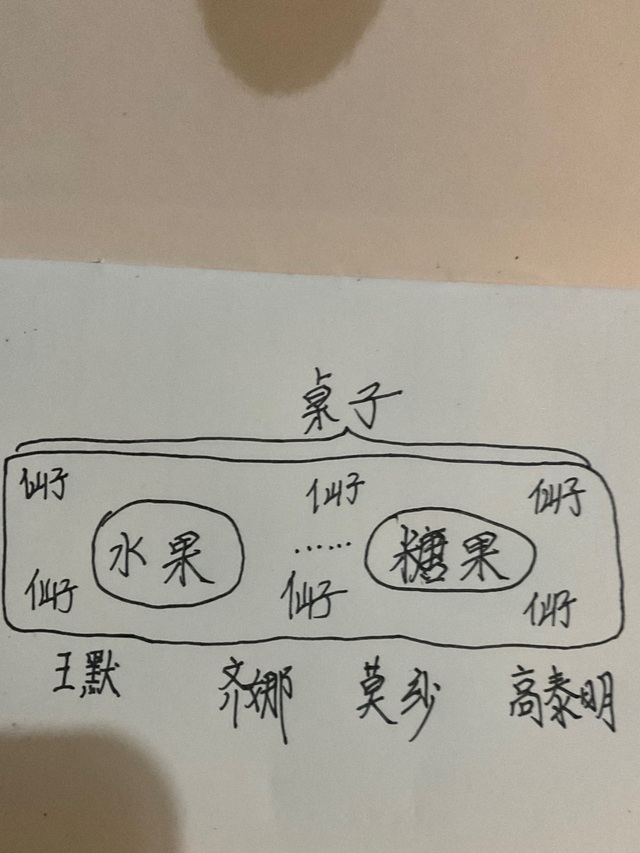 桌子
仙子 仙子 仙子
水果 …… 糖果
仙子 仙子 仙子
王默 齐娜 莫纱 高泰明